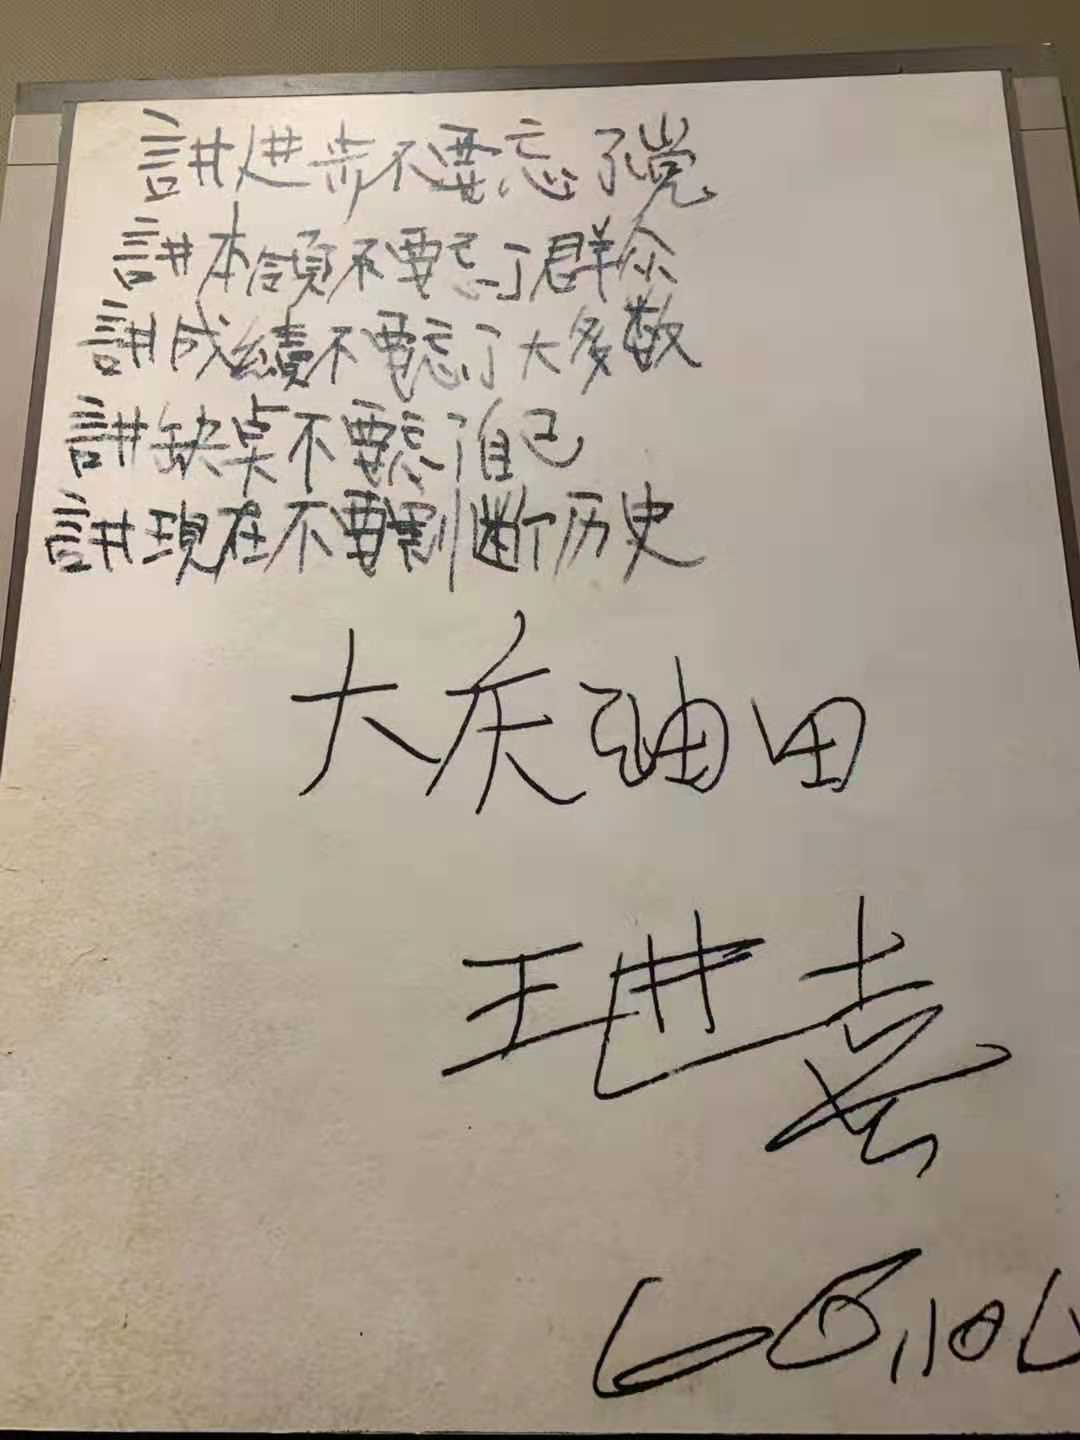 講进步不要忘了党
講本領不要忘了群众
講成績不要忘了大多数
講缺点不要忘了自己
講現在不要割断历史
大庆油田
王进喜
66.10